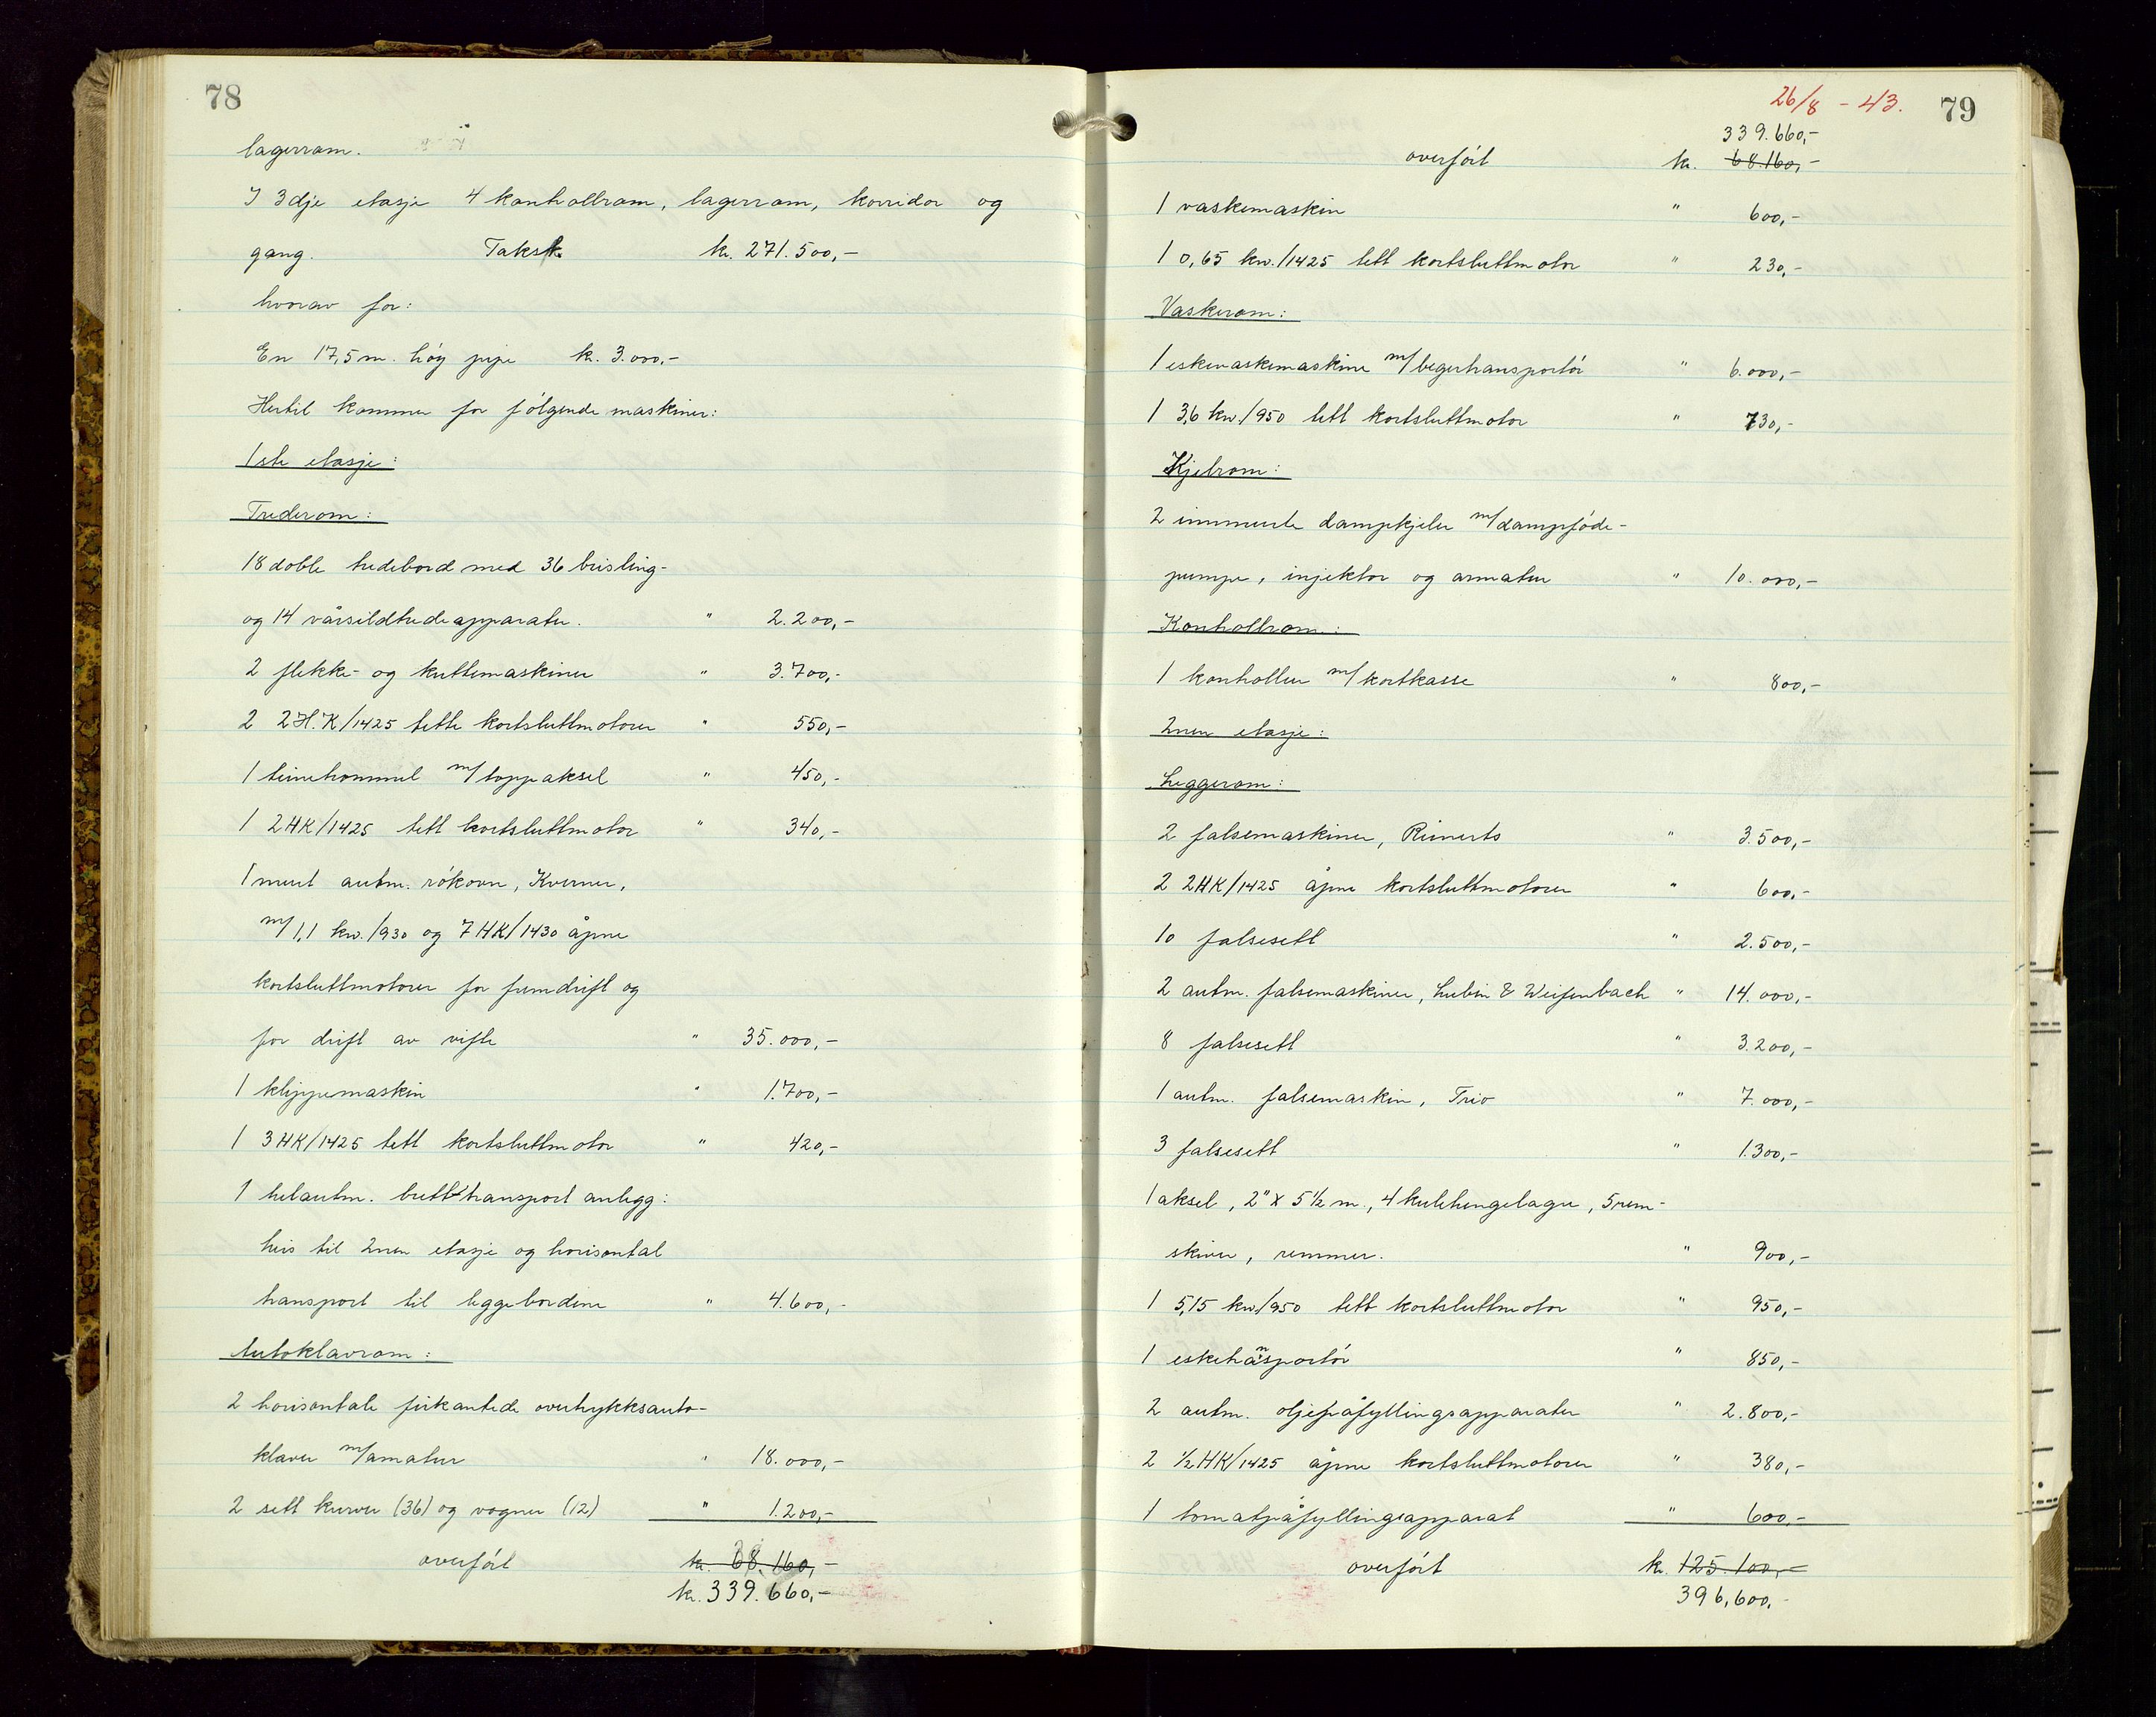 78
lagerrom.
I 3dje etasje 4 kontrollrom, lagerrom, korridor og
gang. Takst kr. 271.500,-
hvorav for:
En 17,5 m. høy pipe kr. 3.000,-
Hertil kommer for følgende maskiner:
1ste etasje:
Trederom:
18 doble tredebord med 36 brisling-
og 14 vårsildtredeapparater. " 2.200,-
2 flekke- og kuttemaskiner " 3.700,-
2 2 H.K/1425 tette kortsluttmotorer " 550,-
1 teinetrommel m/toppaksel " 450,-
1 2 HK/1425 tett kortsluttmotor " 340,-
1 murt autm. røkovn, Kverner,
m/1,1 kw./930 og 7 HK/1430 åpne
kortsluttmotorer for fremdrift og
for drift av vifte " 35.000,-
1 klippemaskin " 1.700,-
1 3 HK/1425 tett kortsluttmotor " 420,-
1 helautm. brett transport anlegg:
heis til 2nen etasje og horisontal
transport til leggebordene " 4.600,-
Autoklavrom:
2 horisontale firkantede overtrykksauto-
klaver m/amatur " 18.000,-
2 sett kurver (36) og vogner (12) " 1.200,-
overført kr. 68.160,-
kr. 339.660,-
26/8 - 43. 79
339.660,-
overført kr. 68.160,-
1 vaskemaskin " 600,-
1 0,65 kw./1425 tett kortsluttmotor " 230,-
Vaskerom:
1 eskevaskemaskine m/begertransportør " 6.000,-
1 3,6 kw./950 tett kortsluttmotor " 730,-
Kjelrom:
2 innmurte dampkjeler m/dampføde-
pumpe, injektor og armatur " 10.000,-
Kontrollrom:
1 kontrollur m/kortkasse " 800,-
2nen etasje:
Leggerom:
2 falsemaskiner, Reinerts " 3.500,-
2 2HK/1425 åpne kortsluttmotorer " 600,-
10 falsesett " 2.500,-
2 autm. falsemaskiner, Lubin & Weifenbach " 14.000,-
8 falsesett " 3.200,-
1 autm. falsemaskin, Trio " 7.000,-
3 falsesett " 1.300,-
1 aksel, 2" x 5 1/2 m., 4 kulehengelagre, 5 rem-
skiver, remmer. " 900,-
1 5,15 kw/950 tett kortsluttmotor " 950,-
1 esketransportør " 850,-
2 autm. oljepåfyllingsapparater " 2.800,-
2 1/2 HK/1425 åpne kortsluttmotorer " 380,-
1 tomatpåfyllingsapparat " 600,-
overført kr. 125.100,-
396,600,-